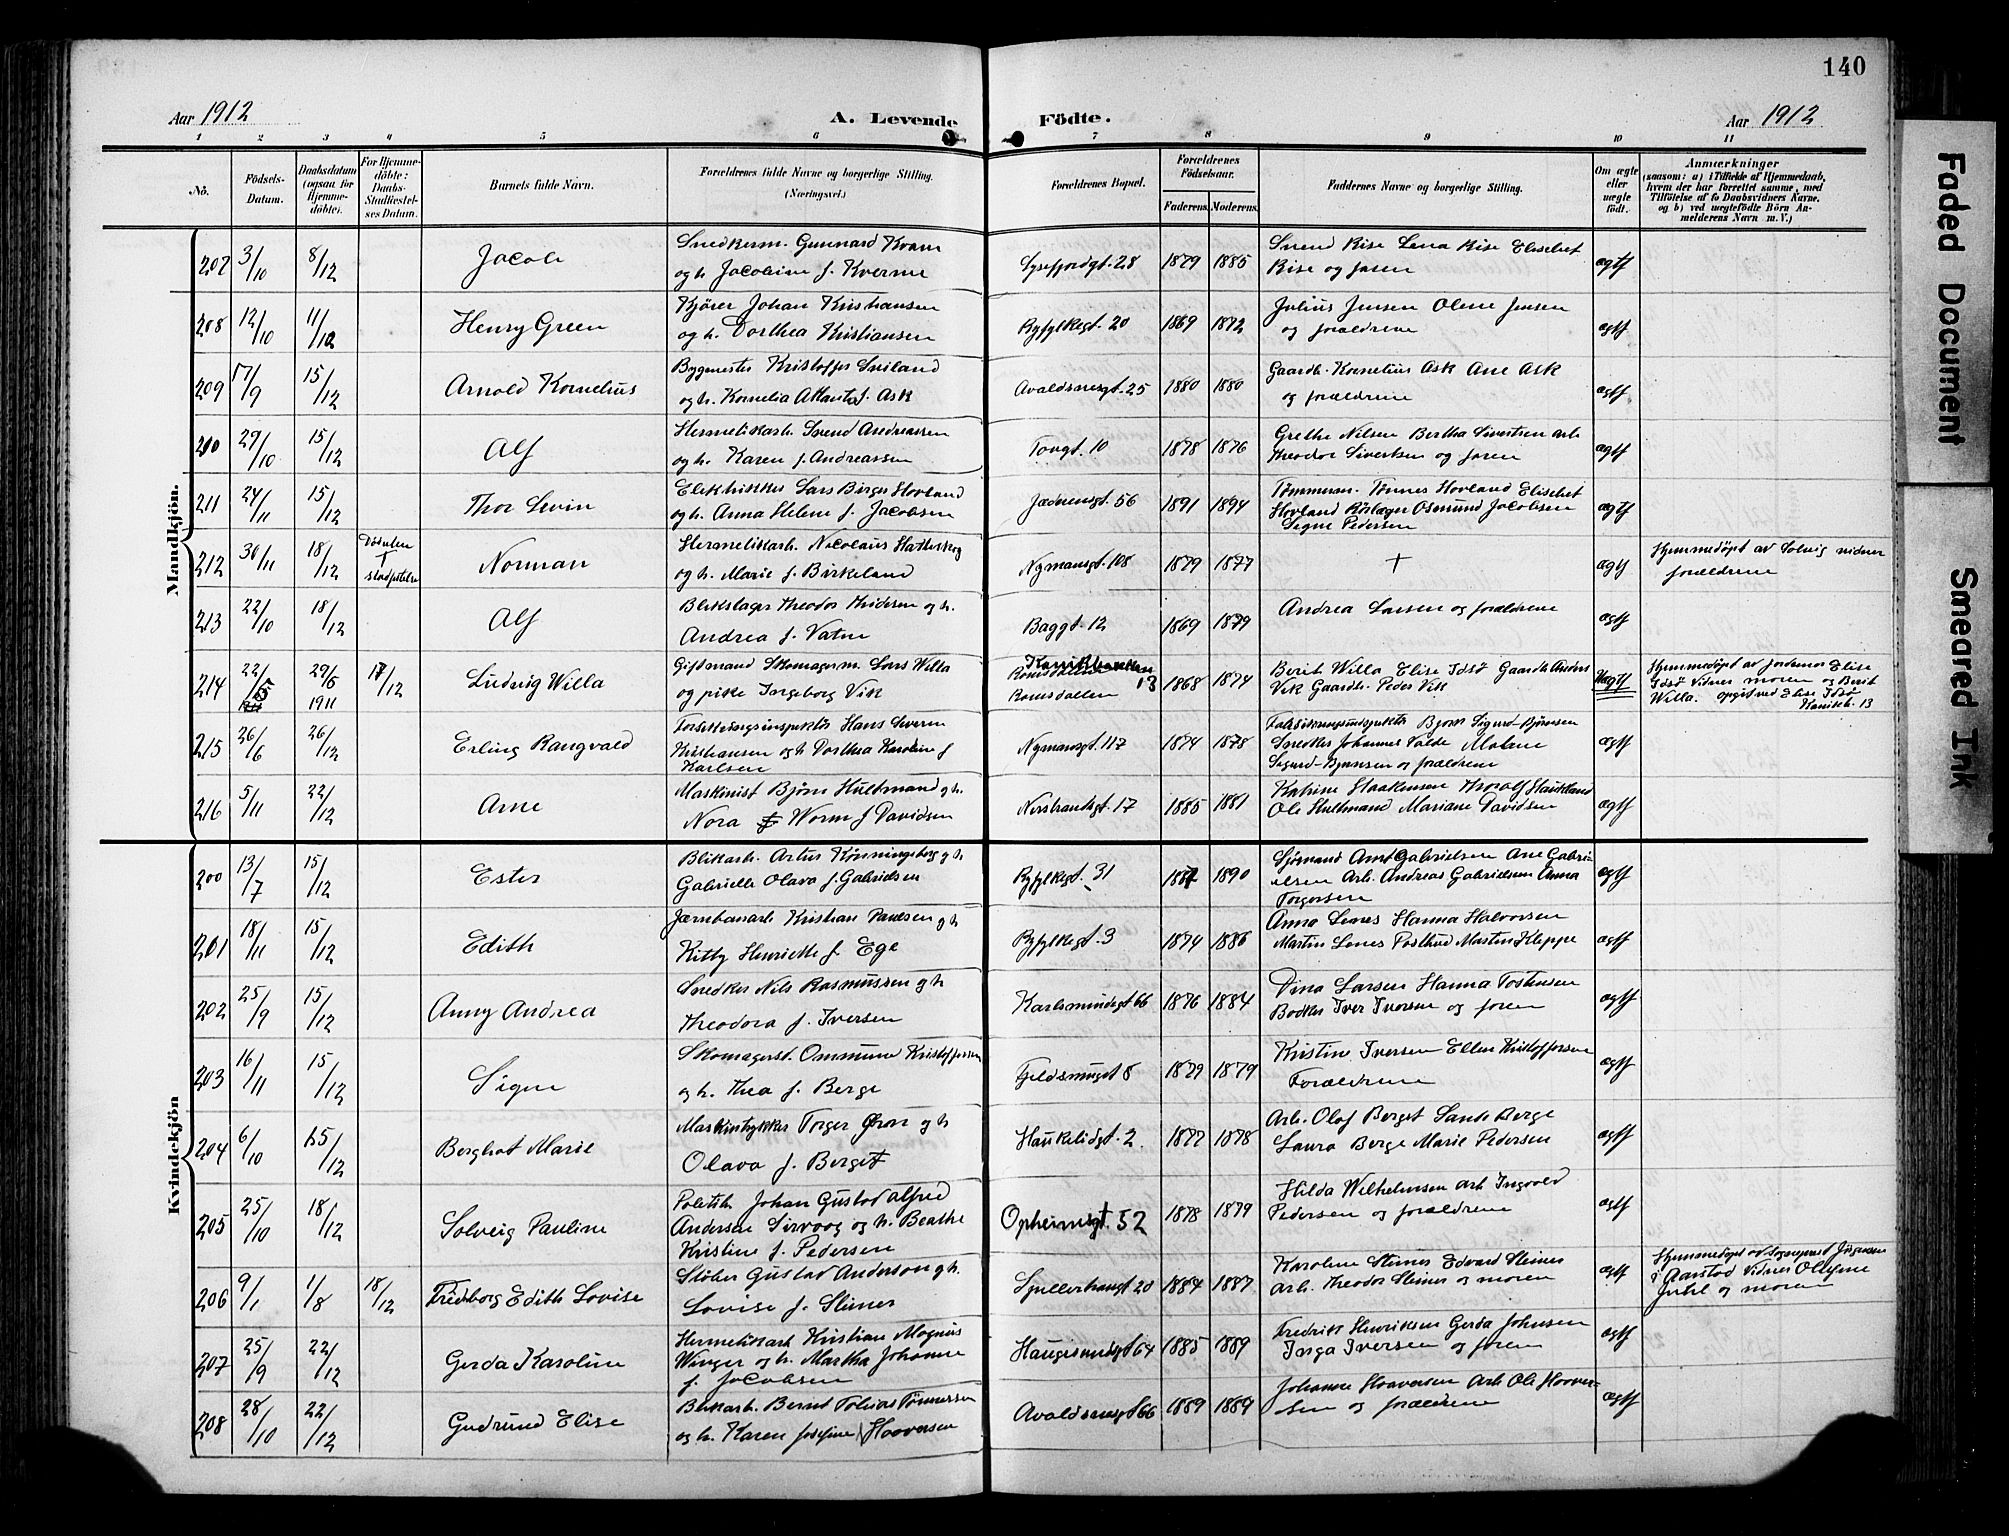 140
Aar 1912
A. Levende Födte.
Aar 1912
1 2 3 4 5 6 7 8 9 10 11
No.
Födsels-Datum.
Daabsdatum (ogsaa for Hjemme-döbte).
For Hjemme-döbte: Daabs-Stadfæstel-ses Datum.
Barnets fulde Navn.
Forældrenes fulde Navne og borgerlige Stilling. (Næringsvei.)
Forældrenes Bopæl.
Forældrenes Födselsaar.
Faderens. Moderens.
Faddernes Navne og borgerlige Stilling.
Om ægte eller uægte födt.
Anmærkninger
(saasom: a) i Tilfælde af Hjemmedaab, hvem der har forrettet samme, med Tilföielse af to Daabsvidners Navne, og b) ved uægtefödte Börn An-melderens Navn m. V.)
Mandkjön.
207 3/10 8/12 Jacob
Snedkerm. Gunnard Kvam
og h. Jacobine f. Kverme
Lysefjordgt. 28 1879 1885
Svend Rise Lena Rise Elisebet
Rise og faren
ægtf
208 12/10 11/12 Henry Green
Kjører Johan Kristiansen
og h. Dorthea Kristiansen
Ryfylkegt. 20 1869 1872
Julius Jensen Oline Jensen
og forældrene
ægtf
209 17/9 15/12 Arnold Kornelius
Bygmester Kristoffer Sviland
og h. Kornelia Atlanta f. Ask
Avaldsnesgt. 25 1880 1880
Gaardb. Kornelius Ask Ane Ask
og forældrene
ægtf
210 29/10 15/12 Alf
Hermetikarb. Svend Andreassen
og h. Karen f. Andreassen
Torvgt. 10 1878 1876
Grethe Nilsen Bertha Sivertsen arb.
Theodor Sivertsen og faren
ægtf
211 24/11 15/12 Thor Levin
Elektrikker Lars Birger Hovland
og h. Anna Helene f. Jacobsen
Jæderensgt. 56 1891 1894
Tømmerm. Tønnes Hovland Elisebet
Hovland Osmund Jacobsen
Signe Pedersen
ægtf
212 30/11 18/12 Norman
Hermetikarb. Nicolaus
og h. Marie f. Birkeland
Nymansgt. 108 1879 1877
+
ægtf
Hjemmedøpt av Solveig vidner
forældrene
213 22/10 18/12 Alf
Blikslager Theodor og h.
Andrea f. Vatne
Baggt. 12 1869 1879
Andrea Larsen og forældrene
ægtf
214 29/5 1911 17/12 Ludvig Willa
Giftmand Skomagerm. Lars Willa
og pike Ingeborg Vik
Romsdallen 13
1868 1874
Berit Willa Elise Idsø Gaardb. Anders
Vik Gaardb. Peder Vik
Uægtf
Hjemmedøpt av jordemor Elise
Idsø Vidner moren og Berit
Willa. opgit ved Elise Idsø
Kanikb. 13
215 26/6 26/12 Erling Rangvald
Hans Severin
Kristiansen og h. Dorthea Karoline f.
Karlsen
Nymansgt. 117 1874 1878
Bjørn Sigurd-Bjørnsen
Snedker Johannes Valde Malene
Sigurd-Bjørnsen og forældrene
ægtf
216 5/11 22/12 Arne
Maskinist Bjørn Hultmand og h.
Nora Worm f. Davidsen
Nerstrandsgt. 17 1885 1881
Katrine Haakensen
Ole Hultmand Mariane Davidsen
ægtf
Kvindekjön
200 13/7 15/12 Ester
Blikarb. Artur Kønningsberg og h.
Gabrielle Olava f. Gabrielsen
Ryfylkegt. 31 1890
Sjømand Arnt Gabrielsen Ane Gabri-
elsen Arb. Andreas Gabrielsen Anna
Torgersen
ægtf
201 18/11 15/12 Edith
Jærnbanearb. Kristian Paulsen og h.
Kitty Henriette f. Ege
Ryfylkegt. 3 1874 1886
Anna Lenes Hanna Halvorsen
Martin Lenes Postbud Martin Kleppe
ægtf
202 25/9 15/12 Anny Andrea
Snedker Nils Rasmussen og h.
Theodora f. Iversen
Karlsmindegt 66 1876 1884
Dina Larsen Hanna Tostensen
Bødker Iver Iversen og faren
ægtf
203 16/11 15/12 Signe
Skomagerst. Ommund Kristoffersen
og h. Thea f. Berge
1879 1879
Kristine Iversen Ellen Kristoffersen
Forældrene
ægtf
204 6/10 15/12 Berghot Marie
Maskintrykker Torger og h.
Olava f. Berget
Haukelidgt. 2 1877 1878
Arb. Olaf Berget Berge
Laura Berge Marie Pedersen
ægtf
205 25/10 18/12 Solveig Pauline
Politik. Johan Gustav Alfred
Andersen Sirvaag og h. Beathe
Kristine f. Pedersen
Opheimsgt. 52 1878 1879
Hilda Wilhelmsen Arb. Ingvald
Pedersen og forældrene
ægtf
206 9/1 1/8 18/12 Fridborg Edith Lovise
Støber Gustav Anderson og h.
Lovise f. Steines
1884 1887
Karoline Steines Edvard Steines
Arb. Theodor Steines og moren
ægtf
Hjemmedøpt av Sogneprest Jørgensen
i Aarstad Vidner
Juhl og moren
207 25/9 22/12 Gerda Karoline
Hermetikarb. Kristian Magnus
Winger og h. Martha Johanne
f. Jacobsen
Haugesundgt 64 1885 1889
Fredrik Henriksen Gerda Johnsen
Inga Iversen og faren
ægtf
208 28/10 22/12 Gudrund Elise
Blikarb. Bernt Tobias Tønnessen
og h. Karen Josefine Haaversen
Avaldsnesgt 66 1889 1889
Johanne Haaversen Arb. Ole Haaver-
sen og forældrene
ægtf
Faded Document
Smeared Ink